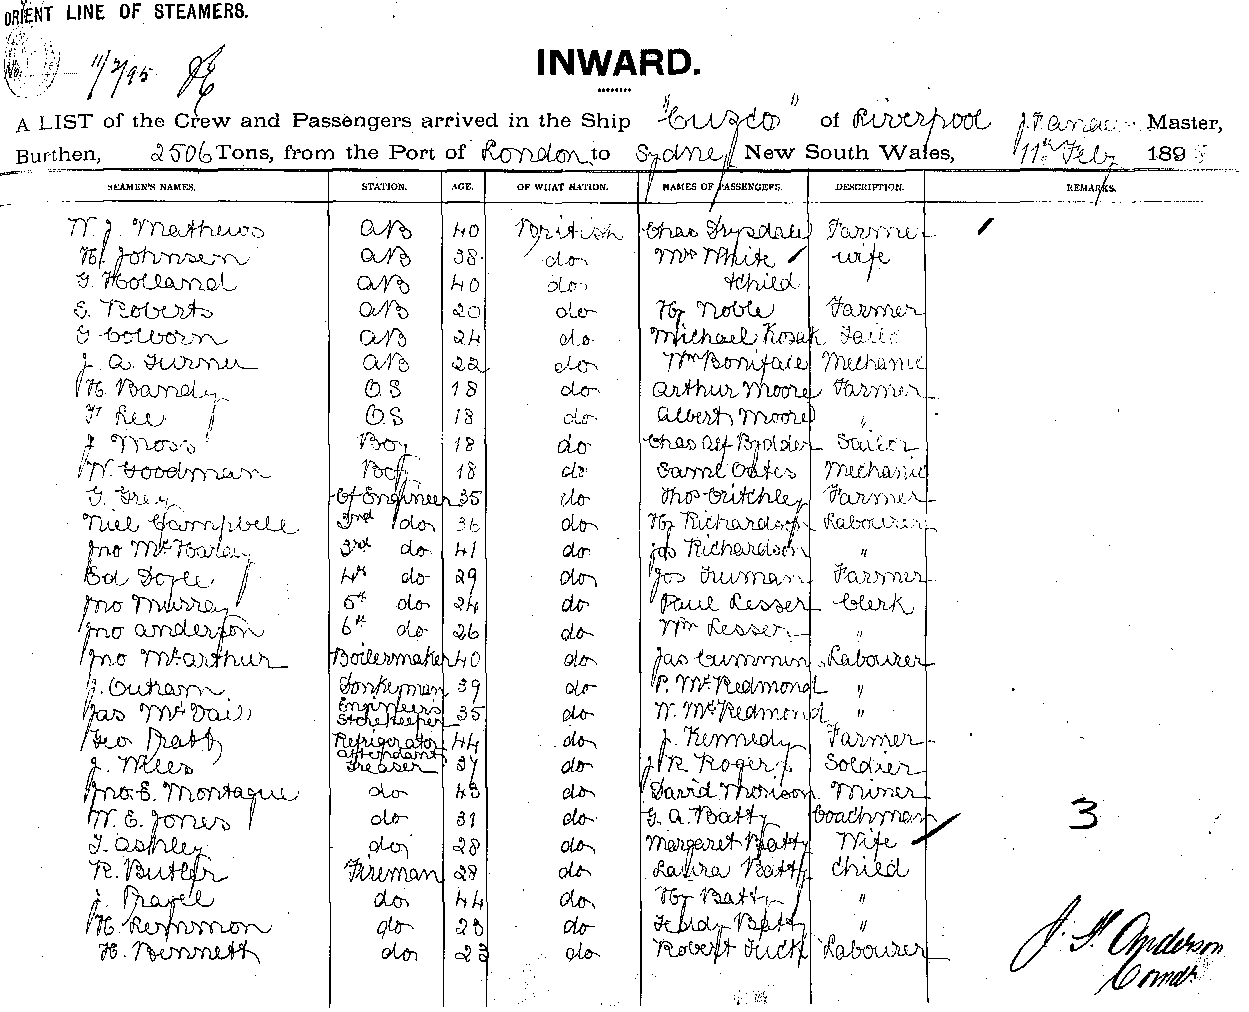 ORIENT LINE OF STEAMERS.
No.
11/2/95
INWARD.
A LIST of the Crew and Passengers arrived in the Ship "Cuzco" of Liverpool Master,
Burthen, 2506 Tons, from the Port of London to Sydney New South Wales, 11th Feby 189
SEAMEN'S NAMES. STATION. AGE. OF WHAT NATION. NAMES OF PASSENGERS. DESCRIPTION. REMARKS.
W. J. Mathews AB 40 British Chas Drysdale Farmer
H. Johnsen AB 38 do Mrs White wife
G. Holland AB 40 do child
E. Roberts AB 20 do Hy Noble Farmer
G Colborn AB 24 do Michael Kosak
J. A. Turner AB 22 do Wm Boniface Mechanic
H. Bandy O.S 18 do Arthur Moore Farmer
F. Lee O.S 18 do Albert Moore "
J. Moss Boy 18 do Chas Alf Sailor
W. Goodman Boy 18 do Saml Oates Mechanic
G. Grey Cf Engineer 35 do Thos Critchley Farmer
Niel Campbell do 36 do Hy Richardson Labourer
Jno 3rd do 41 do Jas Richardson "
Ed Doyle 4th do 29 do Jos Truman Farmer
Jno Murray 5th do 24 do Paul Lesser Clerk
Jno Anderson 6th do 26 do Wm Lesser "
Jno McArthur Boilermaker 40 do Jas Cummin Labourer
J. Outram Donkeyman 39 do P. McRedmond "
Jas McVail Engineers Storekeeper 35 do W. McRedmond "
Geo Pratt Refrigerator Attendant 44 do J. Kennedy Farmer
J. Wees Greaser 37 do J. R. Rogers Soldier
Jno. E. Montague do 43 do David Morison Miner
W. E. Jones do 31 do G. A. Batty Coachman
T. Ashley do 28 do Margaret Batty Wife 3
R. Butler Fireman 28 do Laura Batty Child
J. do 44 do Hy Batty "
H. do 23 do Batty "
H. Bennett do 23 do Robert Tuck Labourer
J. F. Anderson
Comdr